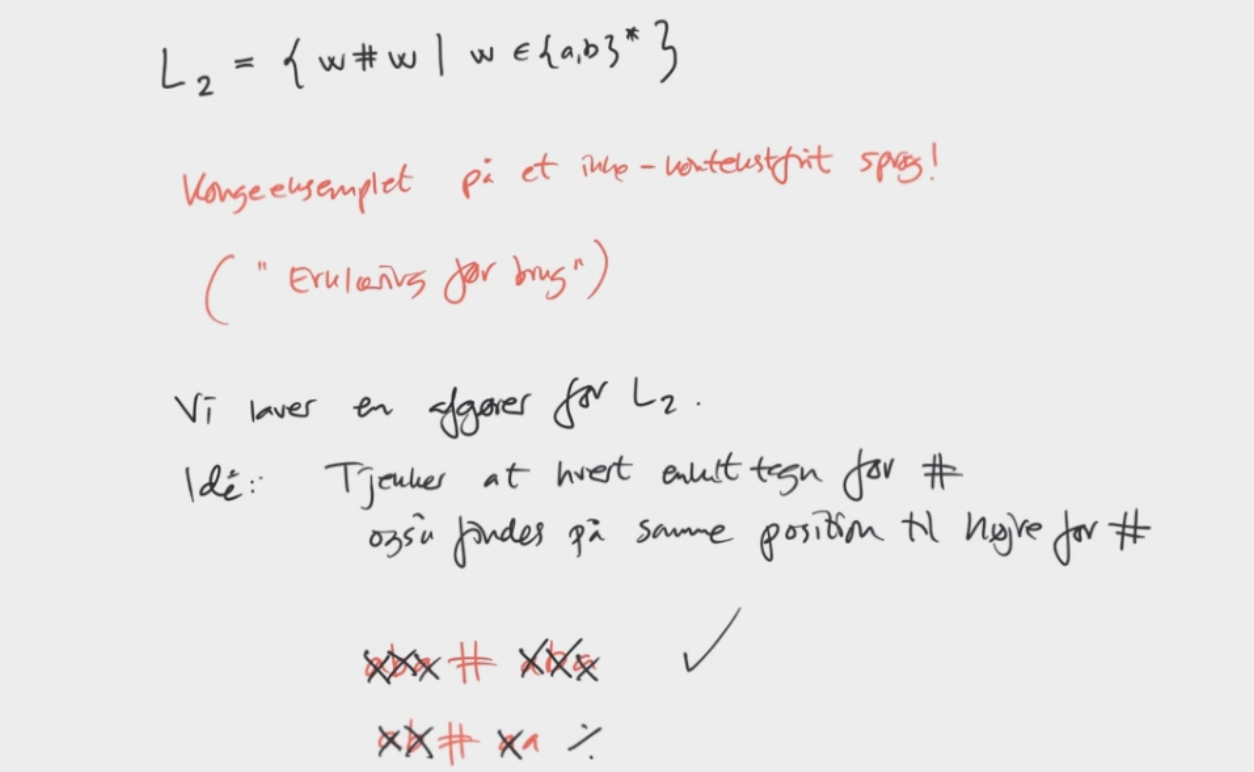 L₂ = { w#w | w ∈ {a,b}* }
Kongeeksemplet på et ikke-kontekstfrit sprog!
("Erklæring før brug")
Vi laver en afgører for L₂.
Idé: Tjekker at hvert enkelt tegn før #
også findes på samme position til højre for #
aba # aba ✓
ab # aa ⁒